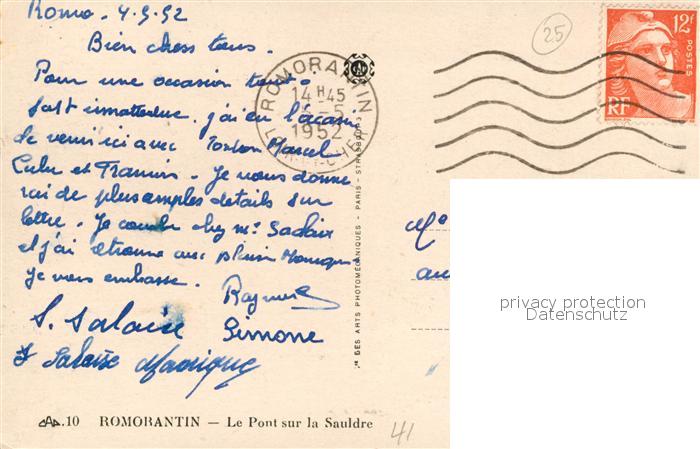 Romo. 4.5.52
Bien chers tous.
Pour une occasion tout-à-
fait inattendue. j'ai eu l'occasion
de venir ici avec Tonton Marcel
Lulu et Francis. Je vous donne
rai de plus amples détails sur
lettre. Je couche chez Mr Salaix
et j'ai retrouvé avec plaisir Monique.
Je vous embrasse. Raymond
S. Salaise Simone
Salaise Monique
Mo
au
ROMORANTIN
14 H 45
5-5
1952
LOIR-ET-CHER
12F
POSTES
RF
25
DES ARTS PHOTOMÉCANIQUES - PARIS - STRASBOURG
privacy protection
Datenschutz
.10 ROMORANTIN — Le Pont sur la Sauldre
41